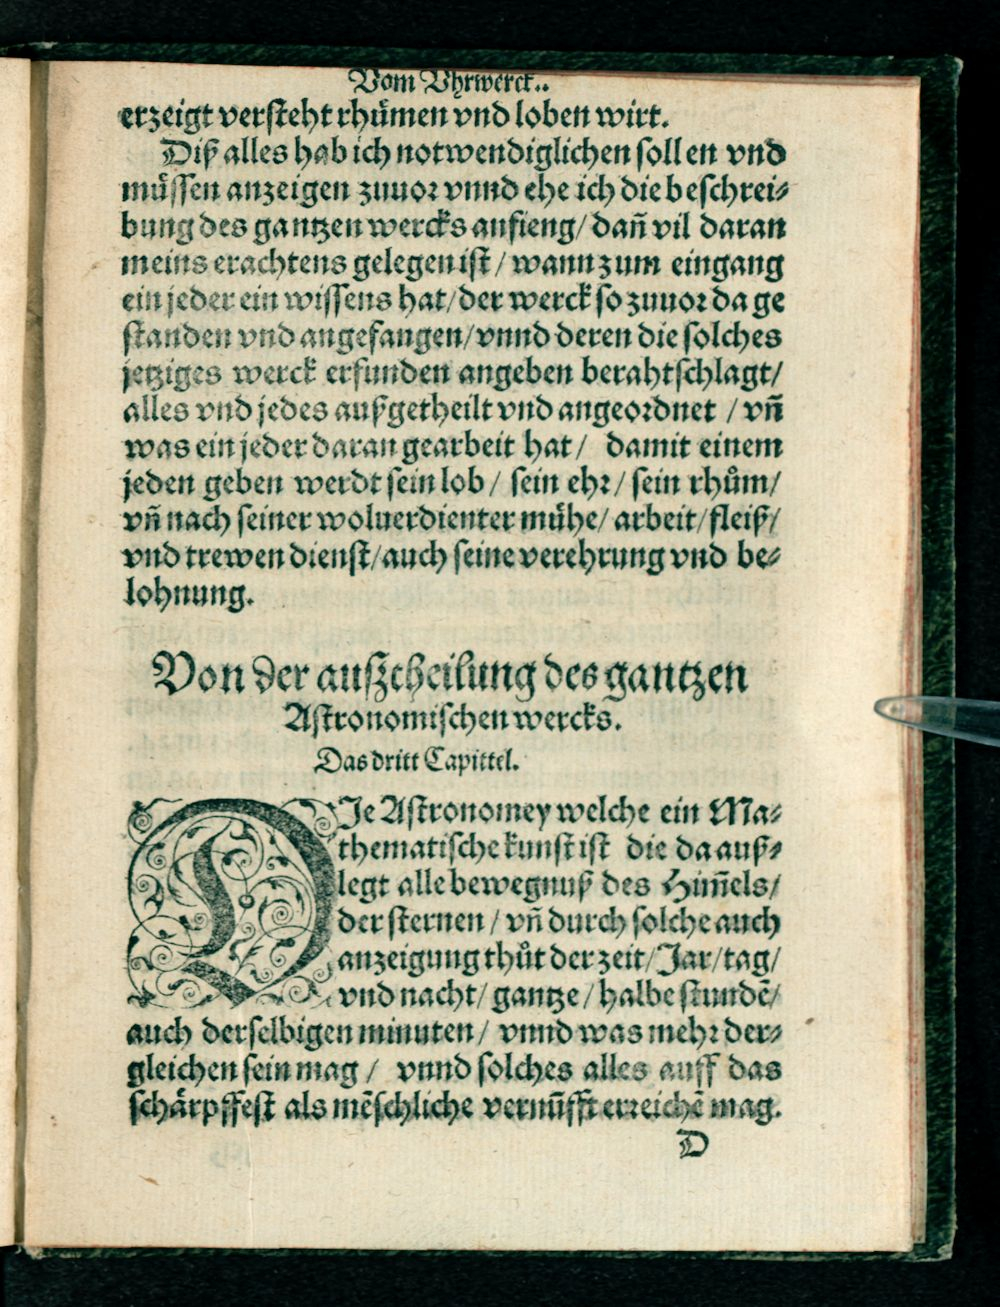 Vom Vhrwerck..
erzeigt versteht rhuͤmen vnd loben wirt.
Diß alles hab ich notwendiglichen sollen vnd
muͤssen anzeigen zuuor vnnd ehe ich die beschrei⸗
bung des gantzen wercks anfieng/ dañ vil daran
meins erachtens gelegen ist/ wann zum eingang
ein jeder ein wissens hat/ der werck so zuuor da ge
standen vnd angefangen/ vnnd deren die solches
jetziges werck erfunden angeben berahtschlagt/
alles vnd jedes außgetheilt vnd angeordnet / vñ
was ein jeder daran gearbeit hat/ damit einem
jeden geben werdt sein lob/ sein ehr/ sein rhům/
vñ nach seiner woluerdienter muͤhe/ arbeit/ fleiß/
vnd trewen dienst/ auch seine verehrung vnd be⸗
lohnung.
Von der außtheilung des gantzen
Astronomischen wercks.
Das dritt Capittel.
DIe Astronomey welche ein Ma⸗
thematische kunst ist die da auß⸗
legt alle bewegnuß des Him̃els/
der sternen / vñ durch solche auch
anzeigung thůt der zeit/ Jar/ tag/
vnd nacht/ gantze/ halbe stundẽ/
auch derselbigen minuten/ vnnd was mehr der⸗
gleichen sein mag / vnnd solches alles auff das
schaͤrpffest als mẽschliche vernũfft erreichẽ mag.
D